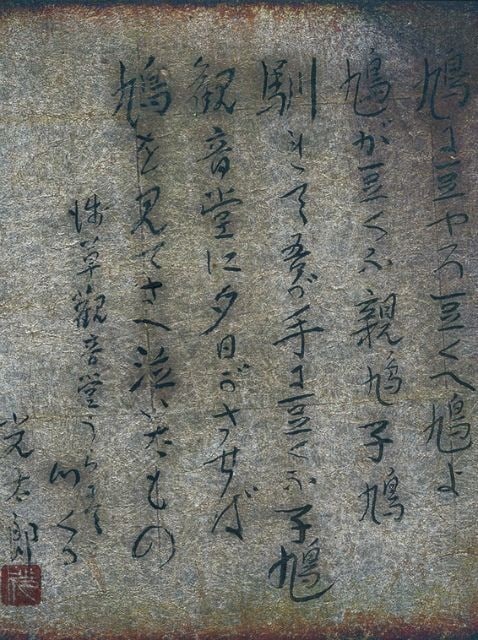 鳩に豆やる豆くへ鳩よ
鳩が豆くふ親鳩子鳩
馴れて吾が手に豆くふ子鳩
観音堂に夕日がさせば
鳩を見てさへ泣いたもの
浅草観音堂うらにて
つくる
光太郎